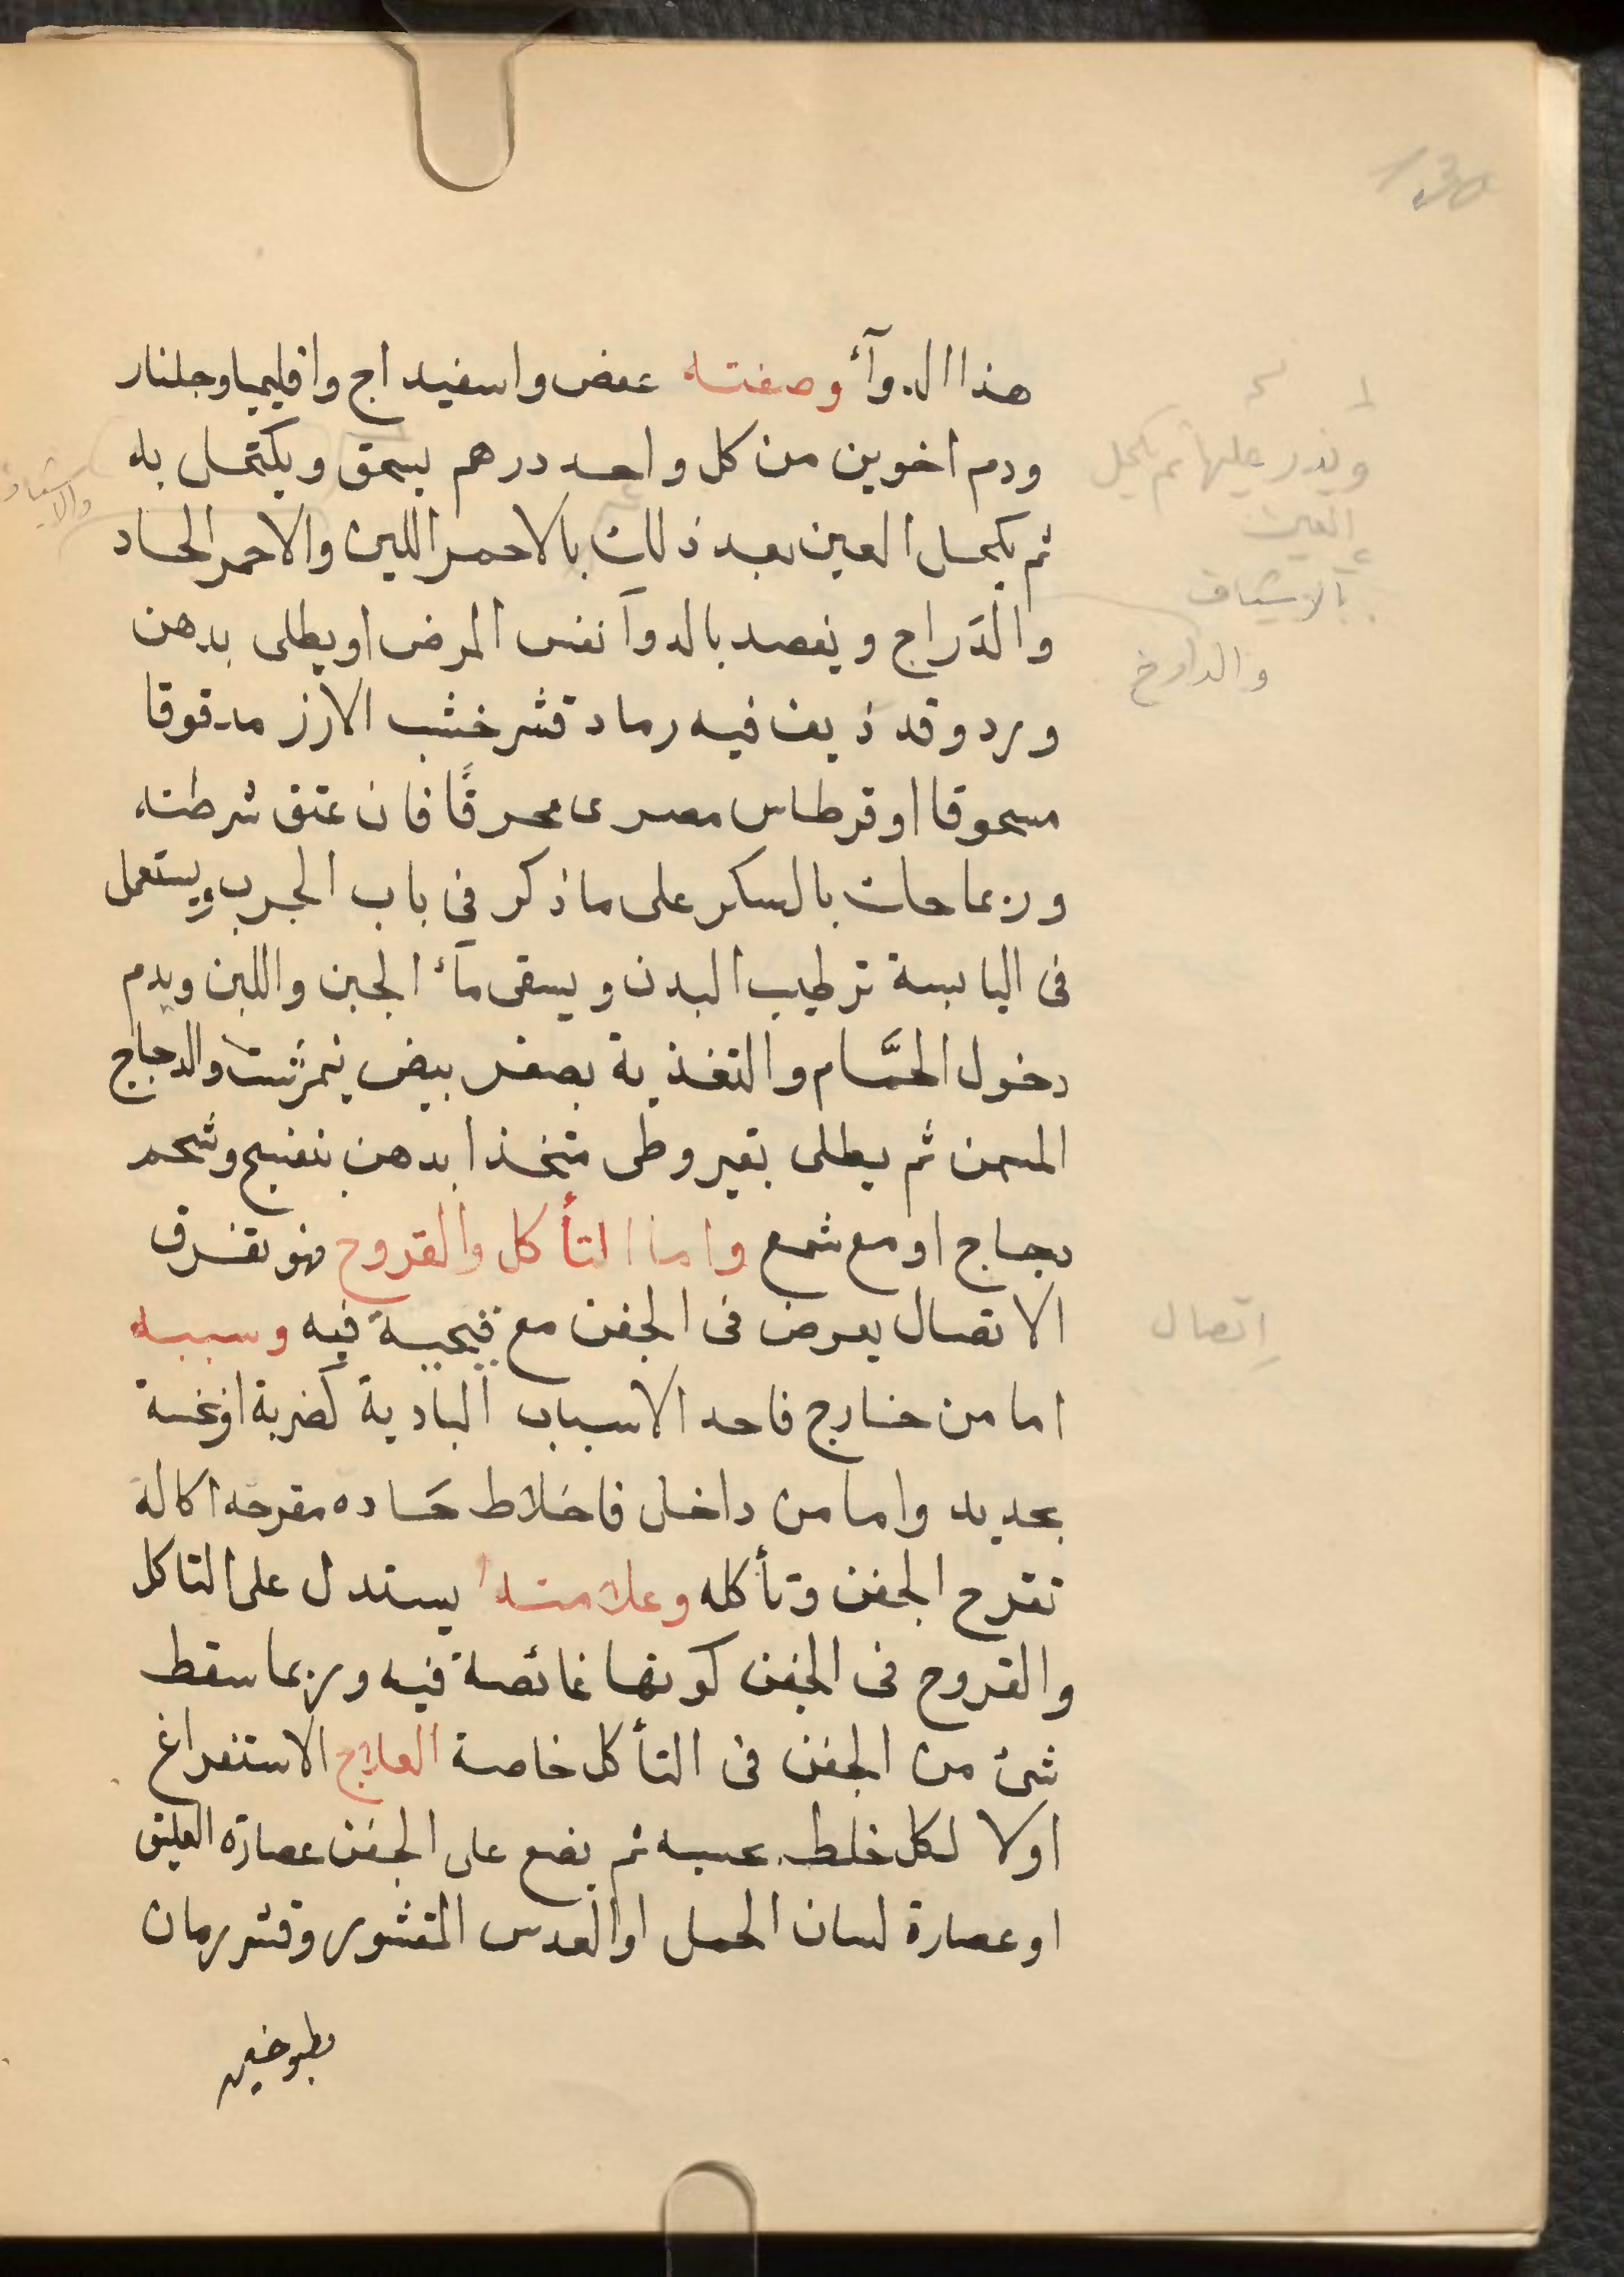 هذا الدوآء وصفته عفص واسفيداج واقليميا وجلنار
ودم اخوين من كل واحد درهم يسحق ويكتحل به
ثم يكحل العين بعد ذلك بالاحمر اللين والاحمر الحاد
والدراج ويقصد بالدوآ نفس المرض او يطلى بدهن
ورد وقد ذيف فيه رماد قشر خشب الارز مدقوقا
مسحوقا او قرطاس مصرى محرقًا فان عتق شرطته
وربما حك بالسكر على ما ذكر فى باب الجرب ويستعمل
فى اليابسة ترطيب البدن ويسقى مآء الجبن واللبن ويدم
دخول الحمَّام والتغذية بصفر بيض نيمرشت والدجاج
المسمن ثم يطلى بقيروطى متخذا بدهن بنفسج وشحم
دجاج او مع شمع واما التأكل والقروح فهو تفرق
الاتصال يعرض فى الجفن مع قيحية فيه وسببه
اما من خارج فاحد الاسباب البادية كضربة او نخسة
بحديد واما من داخل فاخلاط حَاده مقرحه اكالة
تقرح الجفن وتأكله وعلامته يستدل على التاكل
والقروح فى الجفن كونها غائصة فيه وربما سقط
شئ من الجفن فى التأكل خاصة العلاج الاستفراغ
اولا لكل خلط بحسبه ثم يضع على الجفن عصارة العليق
او عصارة لسان الحمل او العدس المقشور وقشر رمان
مطبوخين
ويذر عليها ثم يكحل
العين
بالاشياف
والدارج
والاشياف
اتصال
130